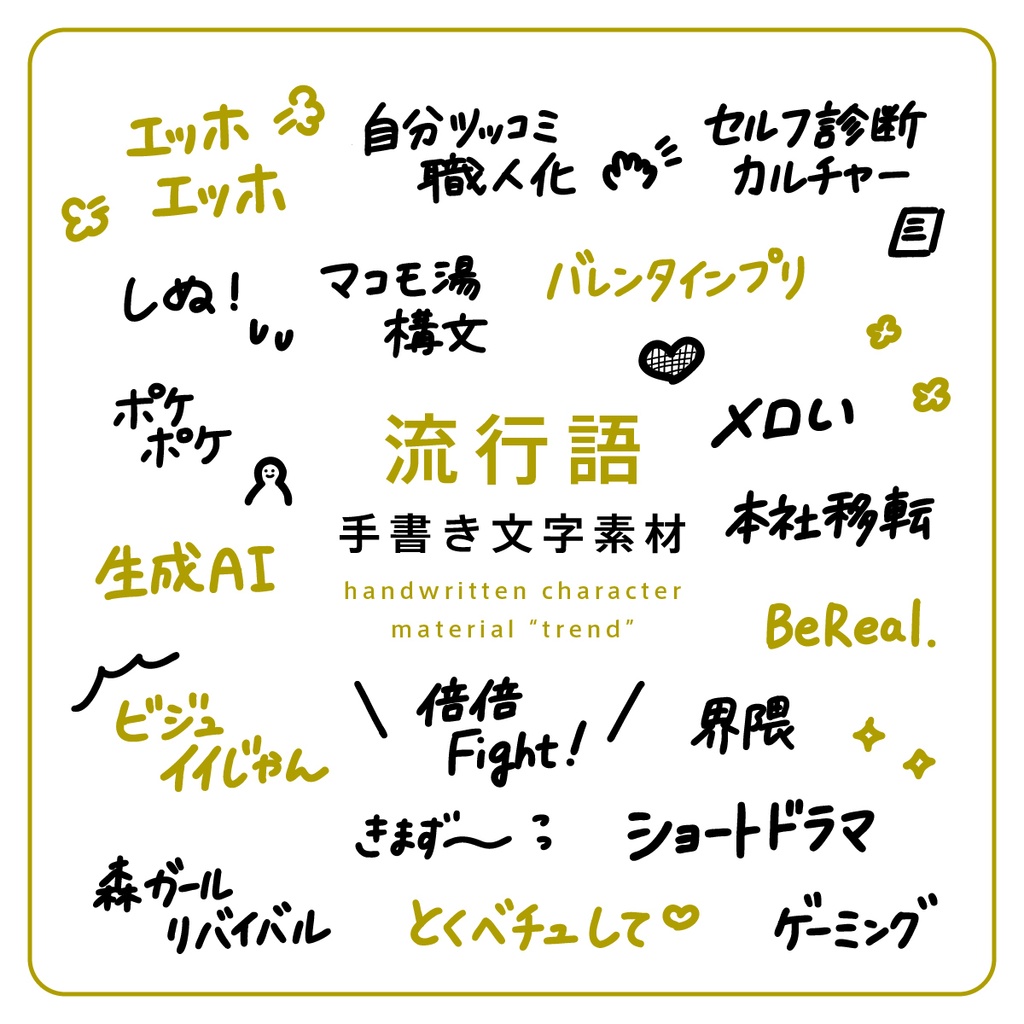 エッホ
エッホ
自分ツッコミ
職人化
セルフ診断
カルチャー
しぬ!
マコモ湯
構文
バレンタインプリ
ポケ
ポケ
メロい
流行語
手書き文字素材
handwritten character
material “trend”
本社移転
生成AI
BeReal.
ビジュ
イイじゃん
倍倍
Fight!
界隈
きまず〜
ショートドラマ
森ガール
リバイバル
とくべチュして♡
ゲーミング